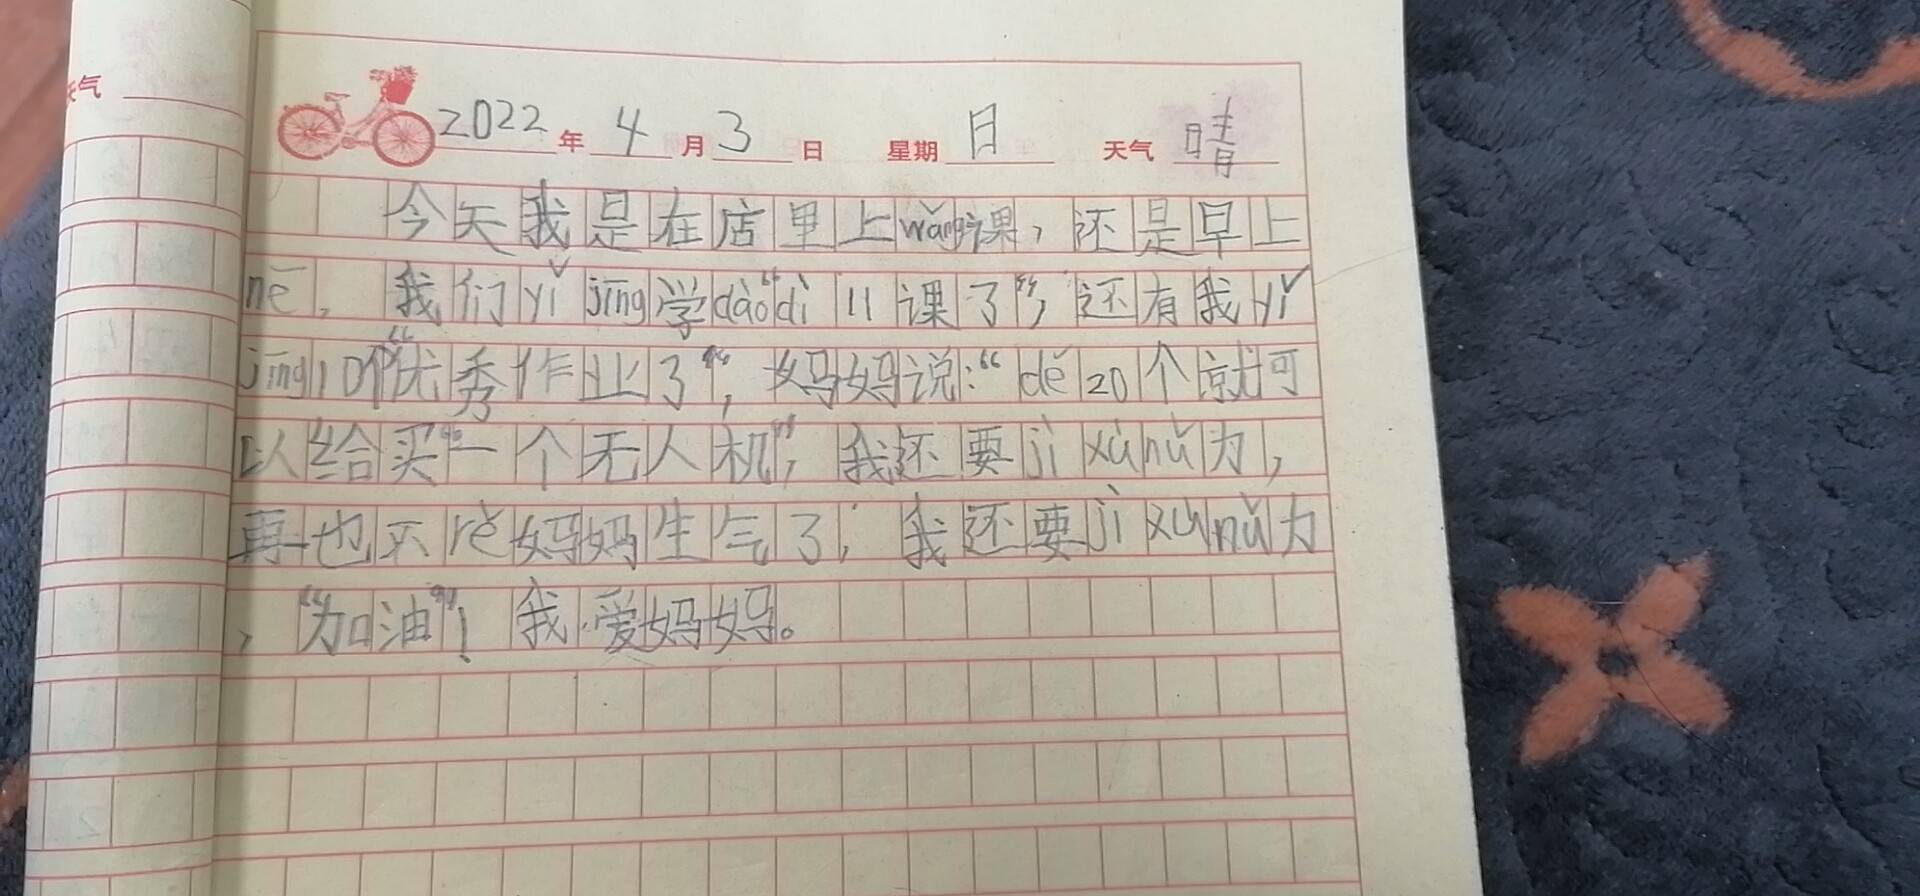 天气
2022年4月3日 星期日 天气晴
今天我是在店里上wǎng课，还是早上
nē，我们yǐ jīng学dào“dì 11课了”，还有我yǐ
jīng10个“优秀作业了”，妈妈说：“dé20个就可
以给买“一个无人机”，我还要jì xù nǔ力，
再也不rě妈妈生气了，我还要jì xù nǔ力
，“加油”！我爱妈妈。